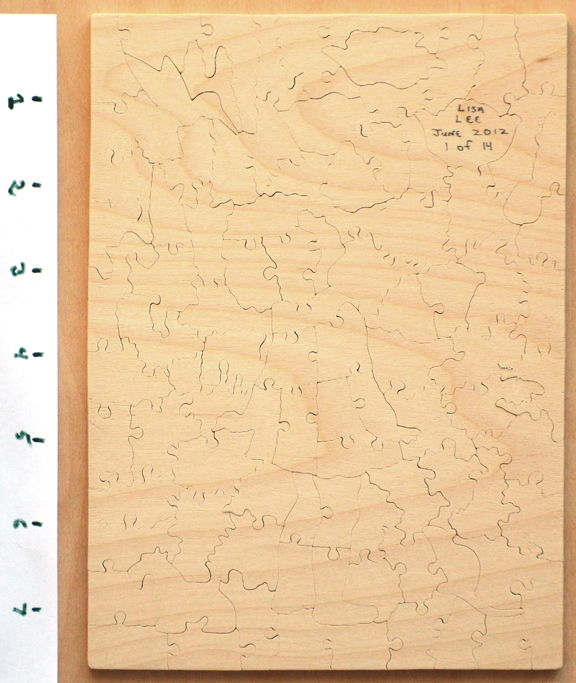 1
2
3
4
5
6
7
LISA
LEE
JUNE 2012
1 of 14